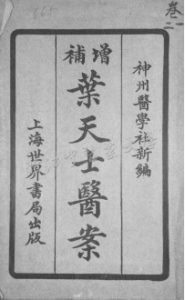 卷一二
神州醫學社新編
增補
葉天士醫案
上海世界書局出版